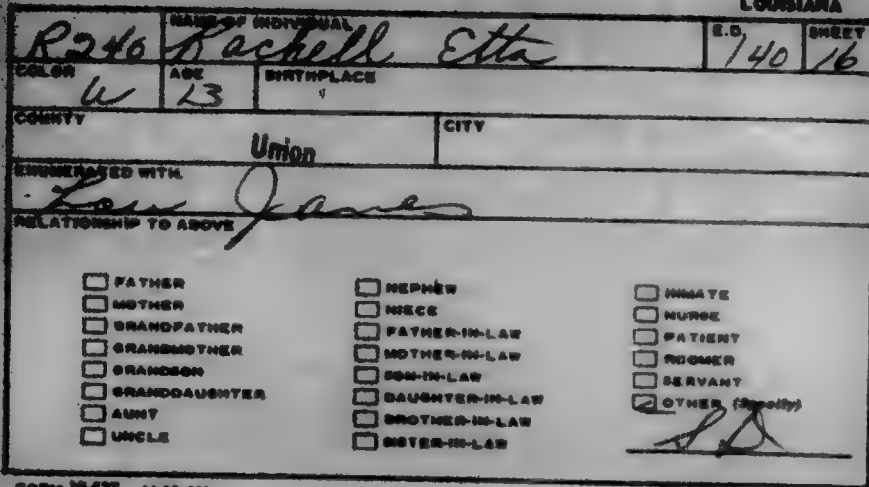 LOUISIANA
NAME OF INDIVIDUAL E.D. SHEET
R240 Rachell Etta 140 16
COLOR AGE BIRTHPLACE
W 13
COUNTY CITY
Union
ENUMERATED WITH
RELATIONSHIP TO ABOVE
FATHER
MOTHER
GRANDFATHER
GRANDMOTHER
GRANDSON
GRANDDAUGHTER
AUNT
UNCLE
NEPHEW
NIECE
FATHER-IN-LAW
MOTHER-IN-LAW
SON-IN-LAW
DAUGHTER-IN-LAW
BROTHER-IN-LAW
SISTER-IN-LAW
INMATE
NURSE
PATIENT
ROOMER
SERVANT
OTHER (Specify)
S D